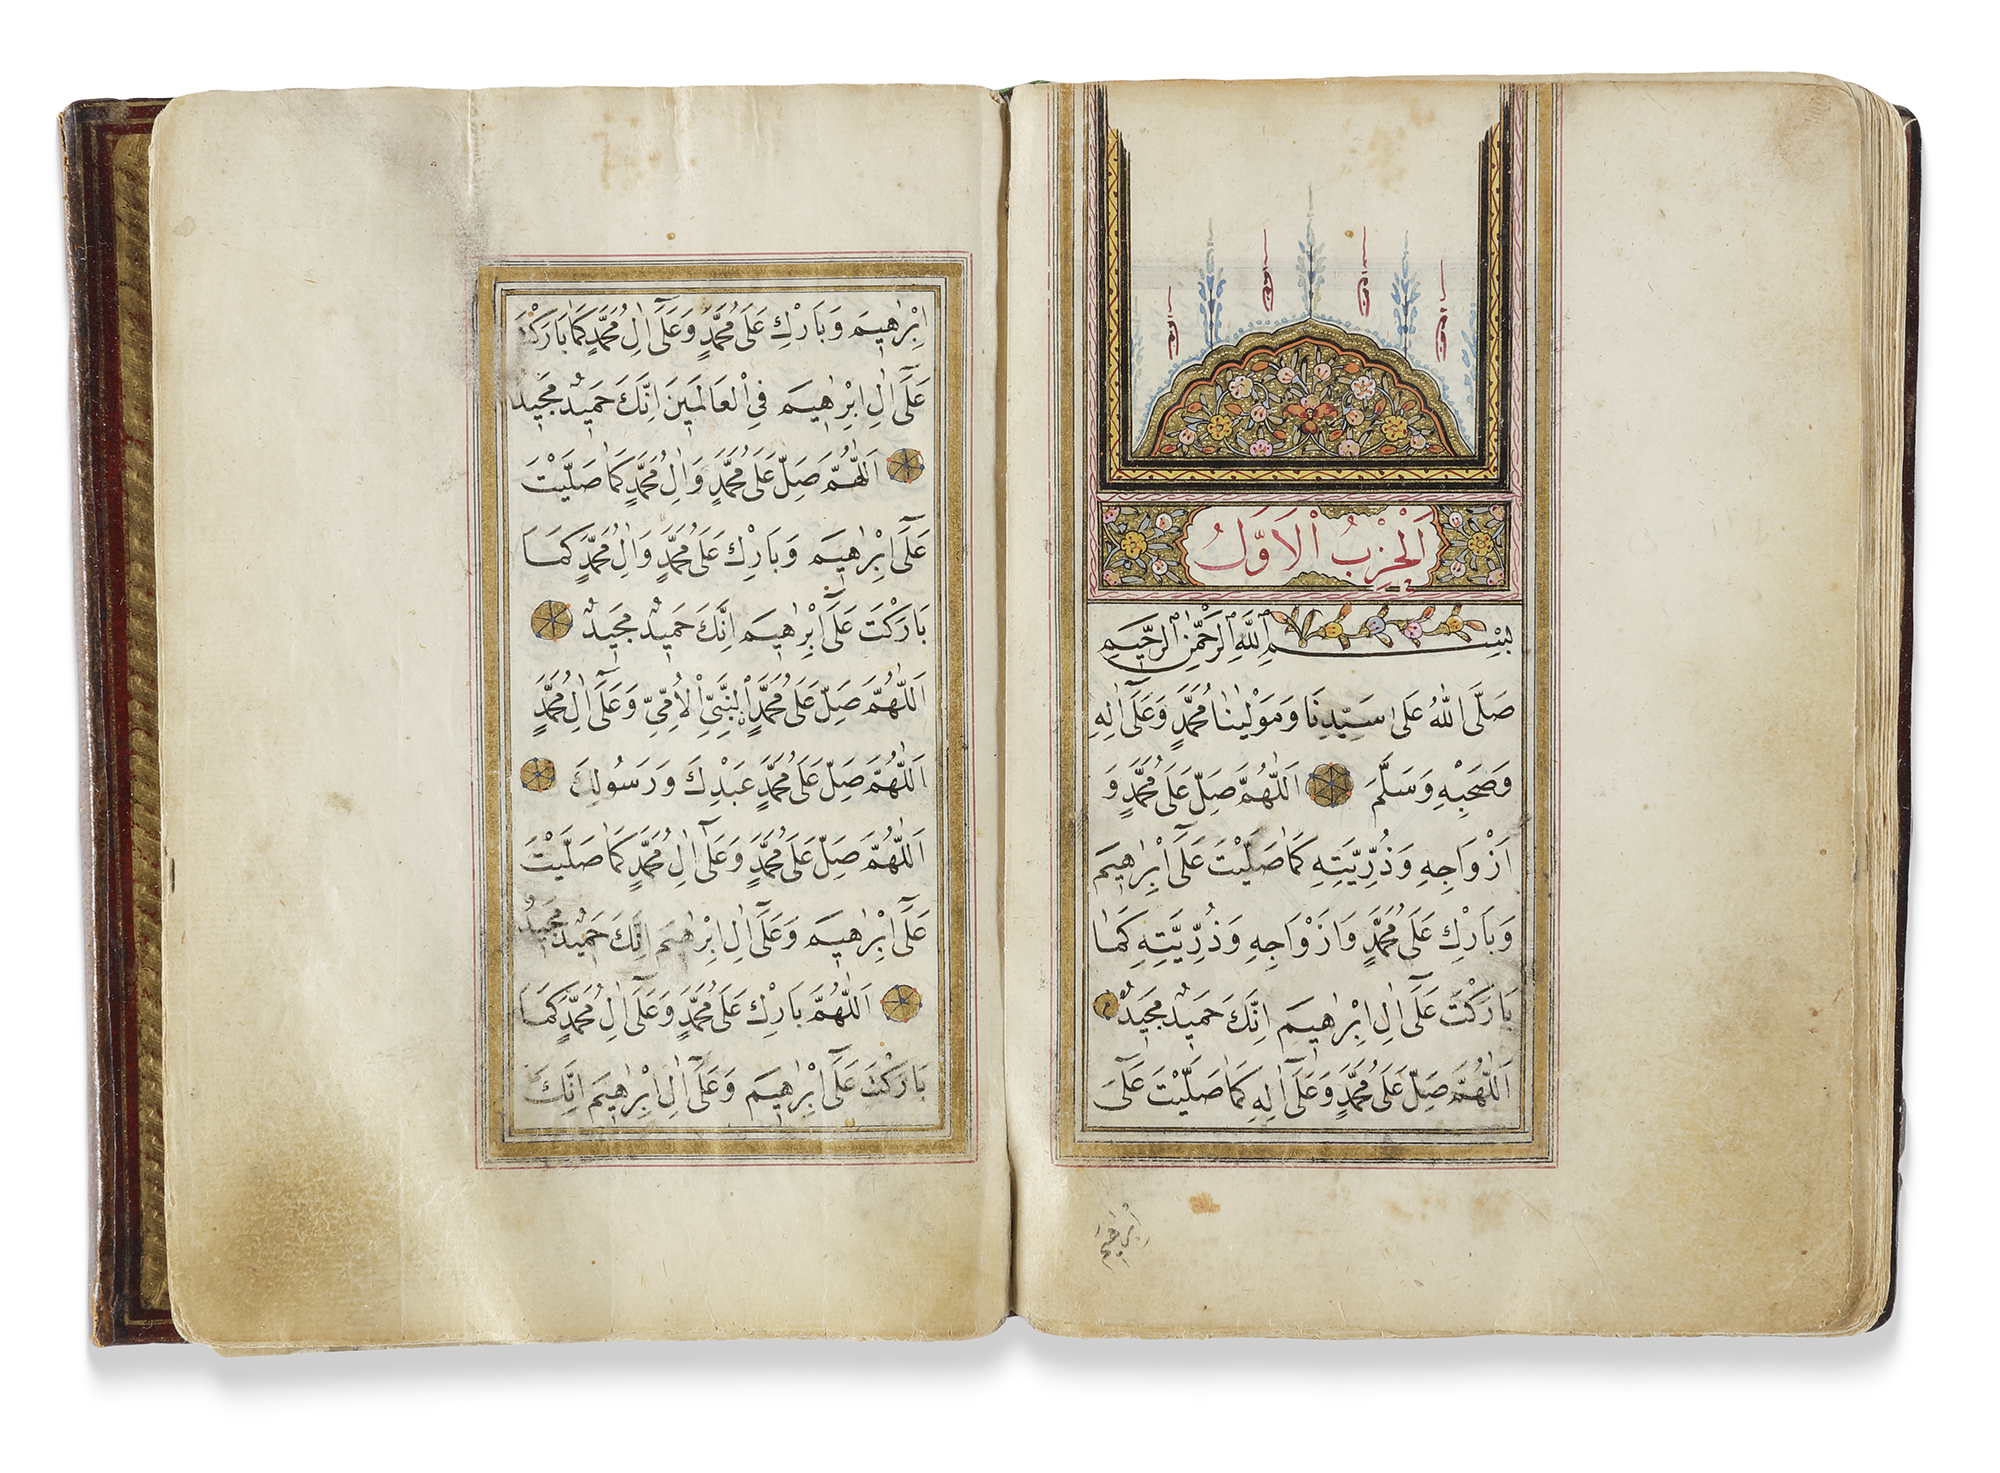 اَلْحِزْبُ الْاَوَّلُ فى
بِسْمِ اللهِ الرَّحْمٰنِ الرَّحِيمِ
صَلَّى اللهُ عَلٰى سَيِّدِنَا وَمَوْلٰينَا مُحَمَّدٍ وَعَلٰٓى اٰلِهِ
وَصَحْبِهِ وَسَلَّمَ اَللّٰهُمَّ صَلِّ عَلٰى مُحَمَّدٍ وَ
اَزْوَاجِهِ وَذُرِّيَّتِهِ كَمَا صَلَّيْتَ عَلٰٓى اِبْرٰهِيمَ
وَبَارِكْ عَلٰى مُحَمَّدٍ وَاَزْوَاجِهِ وَذُرِّيَّتِهِ كَمَا
بَارَكْتَ عَلٰٓى اٰلِ اِبْرٰهِيمَ اِنَّكَ حَمِيدٌ مَجِيدٌ
اَللّٰهُمَّ صَلِّ عَلٰى مُحَمَّدٍ وَعَلٰٓى اٰلِهِ كَمَا صَلَّيْتَ عَلٰٓى
اِبْرٰهِيمَ
اِبْرٰهِيمَ وَبَارِكْ عَلٰى مُحَمَّدٍ وَعَلٰٓى اٰلِ مُحَمَّدٍ كَمَا بَارَكْتَ
عَلٰٓى اٰلِ اِبْرٰهِيمَ فِى الْعَالَمِينَ اِنَّكَ حَمِيدٌ مَجِيدٌ
اَللّٰهُمَّ صَلِّ عَلٰى مُحَمَّدٍ وَاٰلِ مُحَمَّدٍ كَمَا صَلَّيْتَ
عَلٰٓى اِبْرٰهِيمَ وَبَارِكْ عَلٰى مُحَمَّدٍ وَاٰلِ مُحَمَّدٍ كَمَا
بَارَكْتَ عَلٰٓى اِبْرٰهِيمَ اِنَّكَ حَمِيدٌ مَجِيدٌ
اَللّٰهُمَّ صَلِّ عَلٰى مُحَمَّدٍ النَّبِيِّ الْاُمِّيِّ وَعَلٰٓى اٰلِ مُحَمَّدٍ
اَللّٰهُمَّ صَلِّ عَلٰى مُحَمَّدٍ عَبْدِكَ وَرَسُولِكَ
اَللّٰهُمَّ صَلِّ عَلٰى مُحَمَّدٍ وَعَلٰٓى اٰلِ مُحَمَّدٍ كَمَا صَلَّيْتَ
عَلٰٓى اِبْرٰهِيمَ وَعَلٰٓى اٰلِ اِبْرٰهِيمَ اِنَّكَ حَمِيدٌ مَجِيدٌ
اَللّٰهُمَّ بَارِكْ عَلٰى مُحَمَّدٍ وَعَلٰٓى اٰلِ مُحَمَّدٍ كَمَا
بَارَكْتَ عَلٰٓى اِبْرٰهِيمَ وَعَلٰٓى اٰلِ اِبْرٰهِيمَ اِنَّكَ